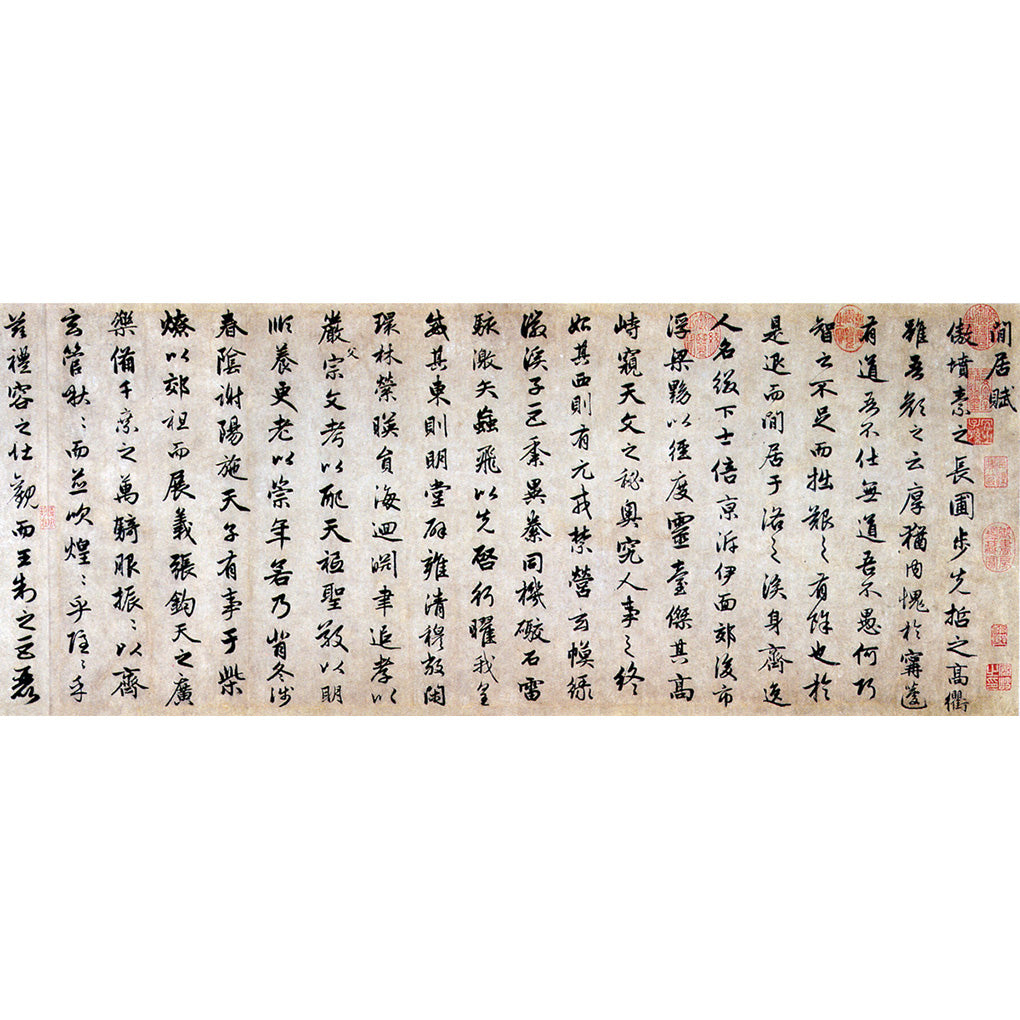 閒居賦
傲墳素之長圃步先哲之高衢
雖吾顏之云厚猶內愧於甯蘧
有道吾不仕無道吾不愚何巧
智之不足而拙艱之有餘也於
是退而閒居于洛之涘身齊逸
人名綴下士倍京泝伊面郊後市
浮梁黝以徑度靈臺傑其高
峙窺天文之秘奧究人事之終
始其西則有元戎禁營玄幙綠
徽溪子巨黍異絭同機礮石雷
駭激矢蝱飛以先啓行曜我皇
威其東則明堂辟雍清穆敞閑
環林縈暎員海迴淵聿追孝以
嚴父宗文考以配天秪聖敬以明
順養更老以崇年若乃背冬涉
春陰謝陽施天子有事于柴
燎以郊祖而展義張鈞天之廣
樂備千乘之萬騎服振〻以齊
玄管啾〻而並吹煌〻乎隱〻乎
茲禮容之壯觀而王制之巨麗